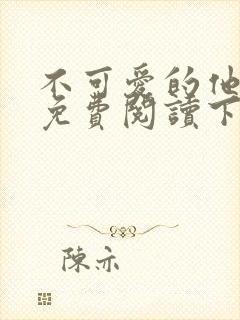 不可爱的他
免費閱讀下
陳亦